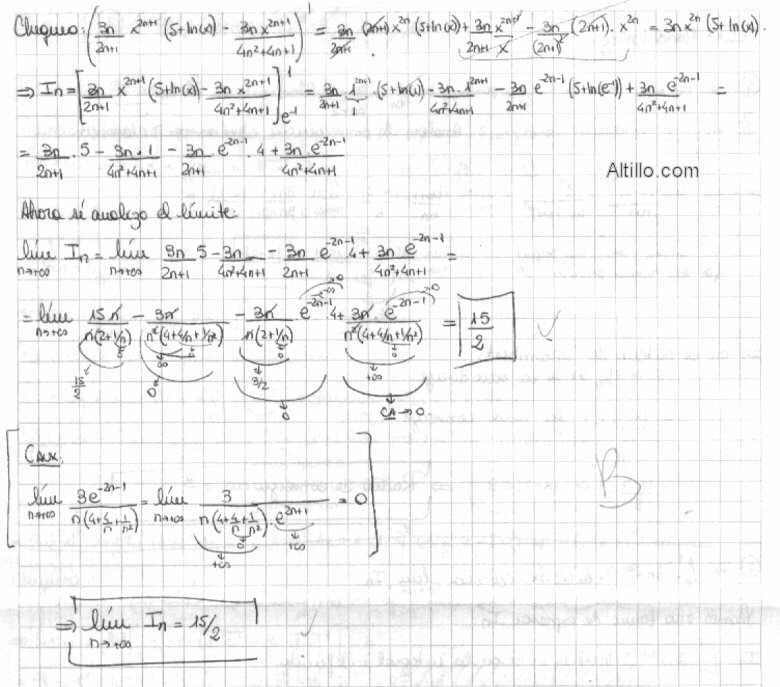 Chequeo: (3n/(2n+1) x^(2n+1) (5+ln(x)) - 3n x^(2n+1)/(4n²+4n+1))' = 3n/(2n+1) (2n+1) x^(2n) (5+ln(x)) + 3n x^(2n+1)/((2n+1) x) - 3n/(2n+1)² (2n+1) . x^(2n) = 3n x^(2n) (5+ln(x).
⇒ In = [3n/(2n+1) x^(2n+1) (5+ln(x)) - 3n x^(2n+1)/(4n²+4n+1)]_(e⁻¹)^1 = 3n/(2n+1) 1^(2n+1) . (5+ln(1)) - 3n . 1^(2n+1)/(4n²+4n+1) - 3n/(2n+1) e^(-2n-1) (5+ln(e⁻¹)) + 3n e^(-2n-1)/(4n²+4n+1) =
1
= 3n/(2n+1) . 5 - 3n . 1/(4n²+4n+1) - 3n/(2n+1) e^(-2n-1) . 4 + 3n e^(-2n-1)/(4n²+4n+1)
Altillo.com
Ahora sí analizo el límite:
lím n→+∞ In = lím n→+∞ 3n/(2n+1) 5 - 3n/(4n²+4n+1) - 3n/(2n+1) e^(-2n-1) 4 + 3n e^(-2n-1)/(4n²+4n+1) =
= lím n→+∞ 15n/(n(2+1/n)) - 3n/(n²(4+4/n+1/n²)) - 3n/(n(2+1/n)) e^(-2n-1) . 4 + 3n . e^(-2n-1)/(n²(4+4/n+1/n²)) = 15/2
15/2 0 3/2 +∞
0 CA→0
B
CAux:
lím n→+∞ 3e^(-2n-1)/(n(4+4/n+1/n²)) = lím n→+∞ 3/(n(4+4/n+1/n²) . e^(2n+1)) = 0
0 +∞
+∞
⇒ lím n→+∞ In = 15/2